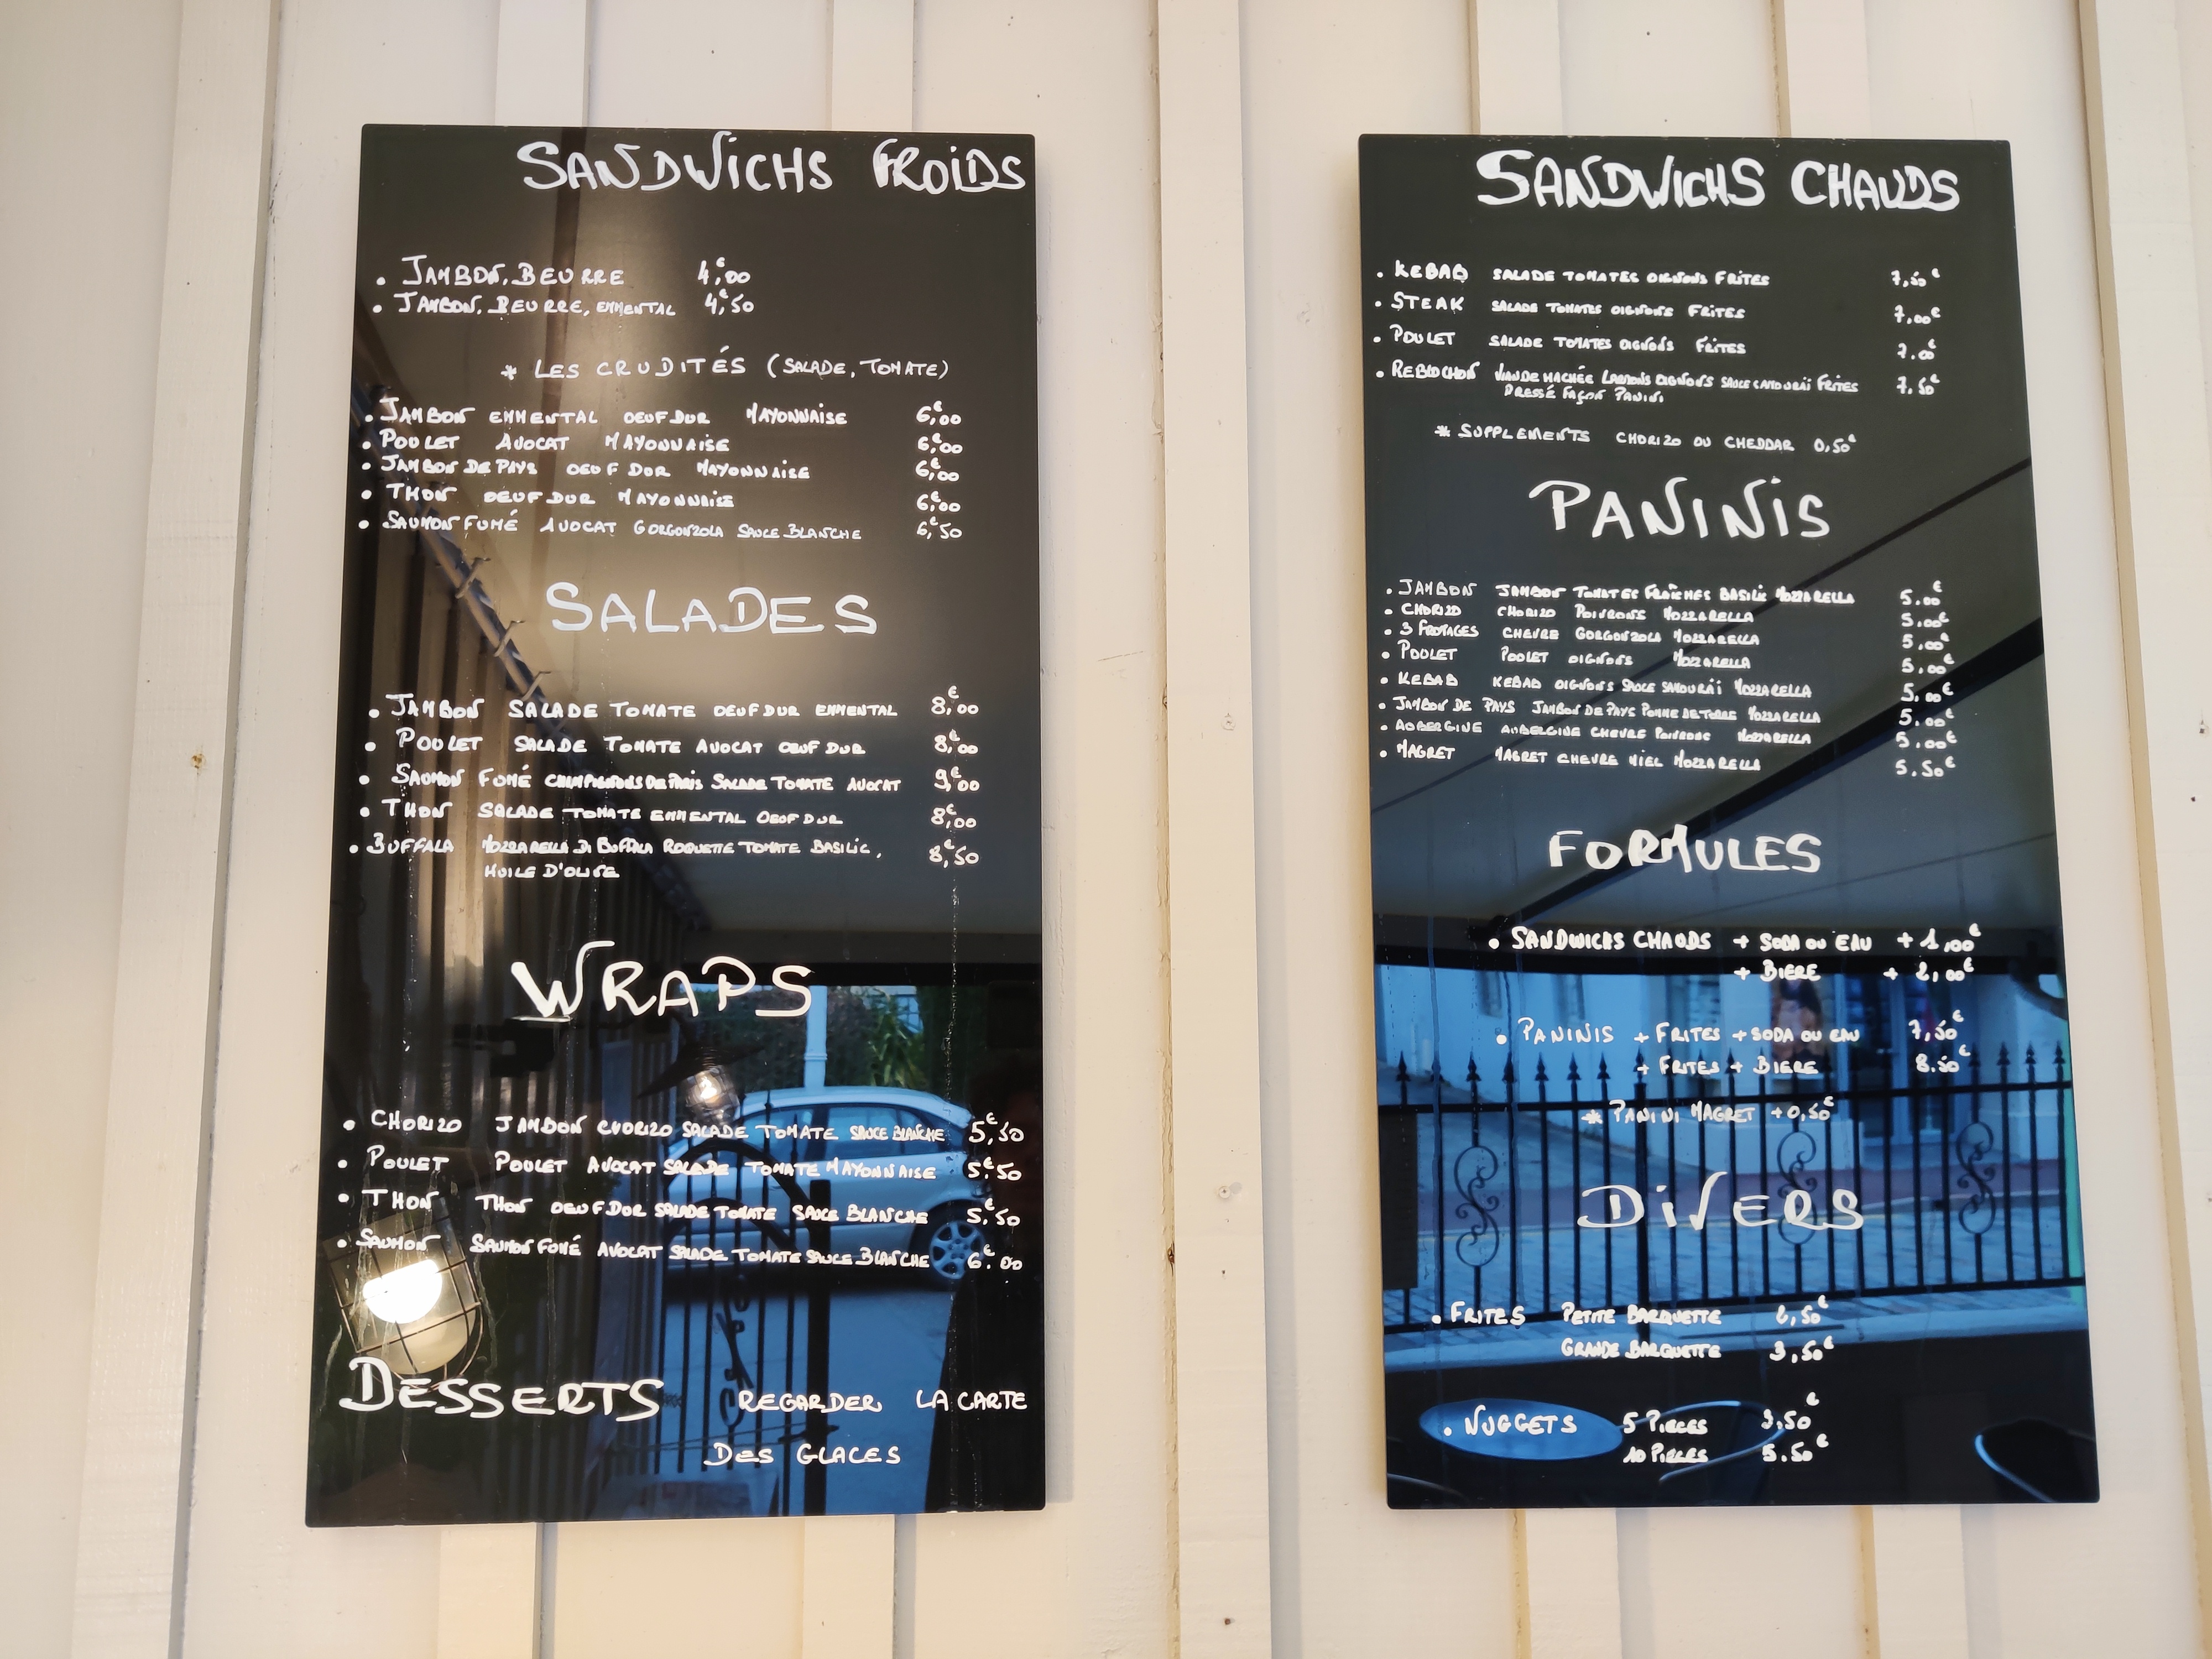 SANDWICHS FROIDS
• JAMBON, BEURRE 4€,00
• JAMBON, BEURRE, EMMENTAL 4€,50
* LES CRUDITÉS (SALADE, TOMATE)
• JAMBON EMMENTAL OEUF DUR MAYONNAISE 6€,00
• POULET AVOCAT MAYONNAISE 6€,00
• JAMBON DE PAYS OEUF DUR MAYONNAISE 6€,00
• THON OEUF DUR MAYONNAISE 6€,00
• SAUMON FUMÉ AVOCAT GORGONZOLA SAUCE BLANCHE 6€,50
SALADES
• JAMBON SALADE TOMATE OEUF DUR EMMENTAL 8€,00
• POULET SALADE TOMATE AVOCAT OEUF DUR 8€,00
• SAUMON FUMÉ CHAMPIGNONS DE PARIS SALADE TOMATE AVOCAT 9€,00
• THON SALADE TOMATE EMMENTAL OEUF DUR 8€,00
• BUFFALA MOZZARELLA DI BUFFALA ROQUETTE TOMATE BASILIC, 8€,50
HUILE D'OLIVE
WRAPS
• CHORIZO JAMBON CHORIZO SALADE TOMATE SAUCE BLANCHE 5€,50
• POULET POULET AVOCAT SALADE TOMATE MAYONNAISE 5€,50
• THON THON OEUF DUR SALADE TOMATE SAUCE BLANCHE 5€,50
• SAUMON SAUMON FUMÉ AVOCAT SALADE TOMATE SAUCE BLANCHE 6€.00
DESSERTS REGARDER LA CARTE
DES GLACES
SANDWICHS CHAUDS
• KEBAB SALADE TOMATES OIGNONS FRITES 7,50€
• STEAK SALADE TOMATES OIGNONS FRITES 7,00€
• POULET SALADE TOMATES OIGNONS FRITES 7.00€
• REBLOCHON VIANDE HACHÉE LARDONS OIGNONS SAUCE SAMOURAÏ FRITES 7.50€
PRESSÉ FAÇON PANINI
* SUPPLEMENTS CHORIZO OU CHEDDAR 0,50€
PANINIS
• JAMBON JAMBON TOMATES FRAÎCHES BASILIC MOZZARELLA 5.00€
• CHORIZO CHORIZO POIVRONS MOZZARELLA 5.00€
• 3 FROMAGES CHEVRE GORGONZOLA MOZZARELLA 5.00€
• POULET POULET OIGNONS MOZZARELLA 5.00€
• KEBAB KEBAB OIGNONS SAUCE SAMOURAÏ MOZZARELLA 5.00€
• JAMBON DE PAYS JAMBON DE PAYS POMME DE TERRE MOZZARELLA 5.00€
• AUBERGINE AUBERGINE CHEVRE POIVRONS MOZZARELLA 5.00€
• MAGRET MAGRET CHEVRE MIEL MOZZARELLA 5.50€
FORMULES
• SANDWICHS CHAUDS + SODA OU EAU + 1,00€
+ BIERE + 2,00€
• PANINIS + FRITES + SODA OU EAU 7,50€
+ FRITES + BIERE 8.50€
* PANINI MAGRET +0,50€
DIVERS
• FRITES PETITE BARQUETTE 2,50€
GRANDE BARQUETTE 3,50€
• NUGGETS 5 PIECES 3.50€
10 PIECES 5.50€